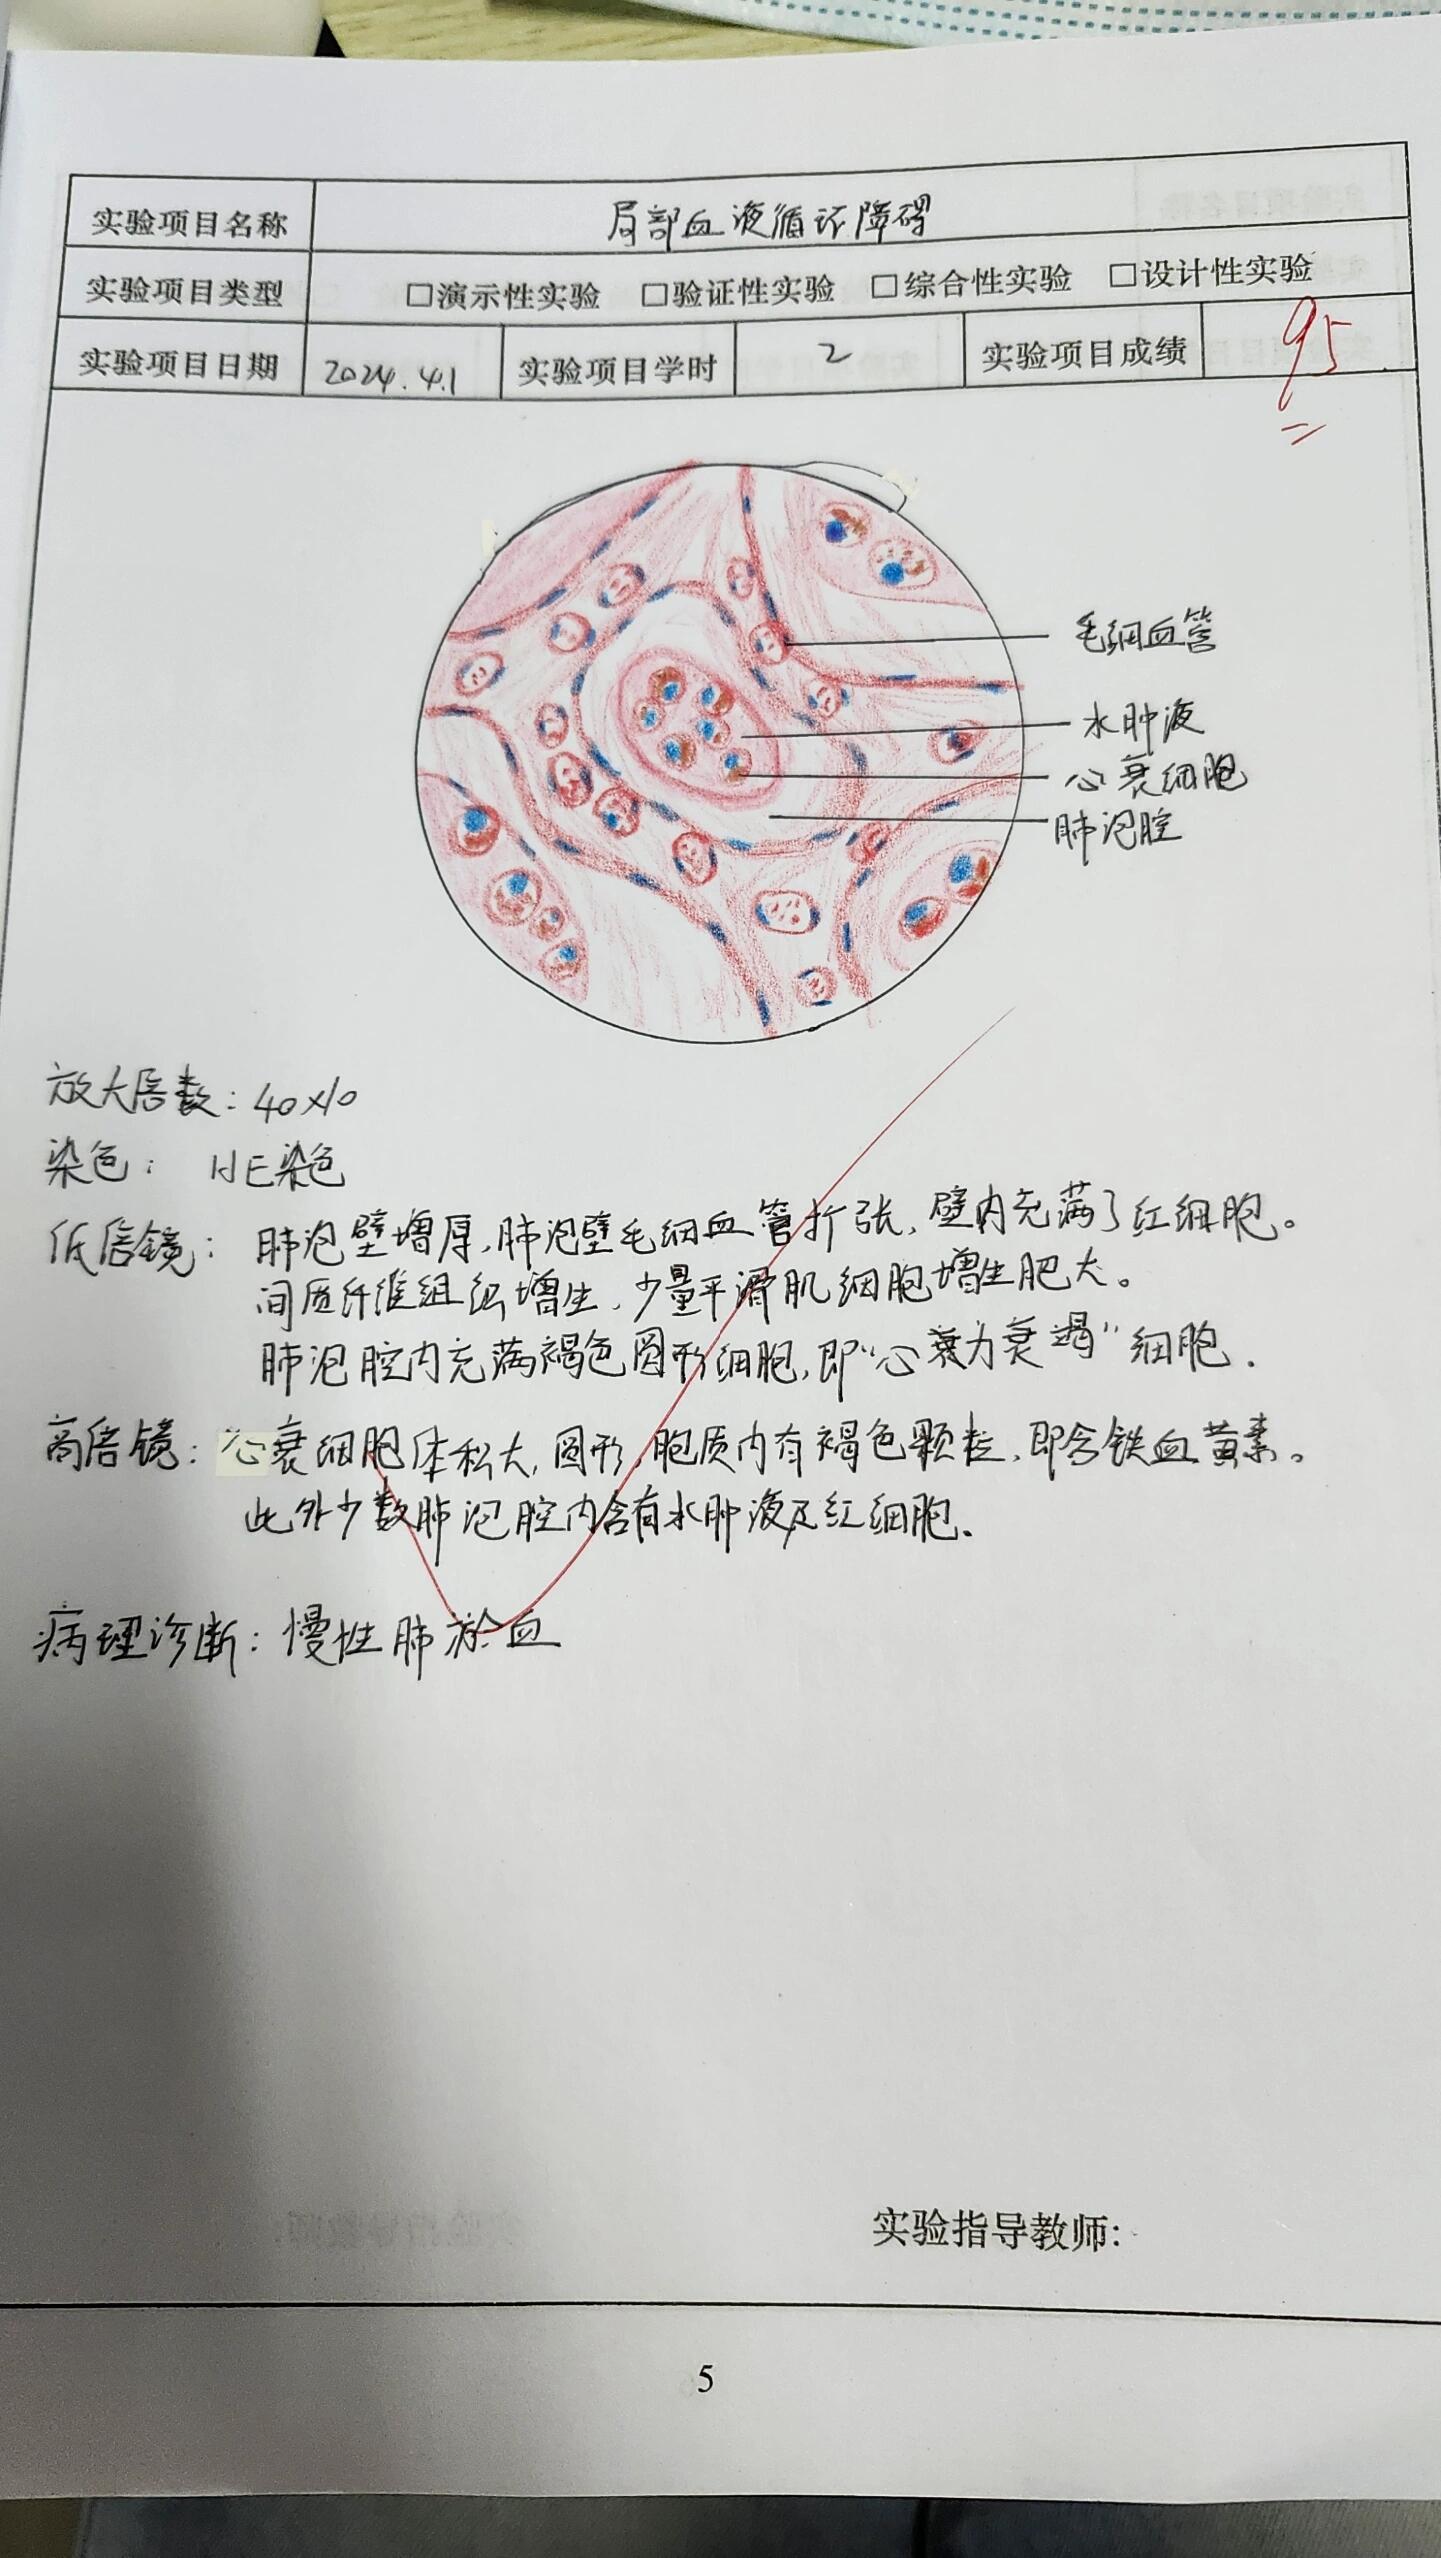 实验项目名称 局部血液循环障碍
实验项目类型 □演示性实验 □验证性实验 □综合性实验 □设计性实验
实验项目日期 2024.4.1 实验项目学时 2 实验项目成绩 95
毛细血管
水肿液
心衰细胞
肺泡腔
放大倍数：40×10
染色： HE染色
低倍镜： 肺泡壁增厚，肺泡壁毛细血管扩张，壁内充满了红细胞。
间质纤维组织增生，少量平滑肌细胞增生肥大。
肺泡腔内充满褐色圆形细胞，即“心衰力衰竭”细胞.
高倍镜：心衰细胞体积大，圆形，胞质内有褐色颗粒，即含铁血黄素。
此外少数肺泡腔内含有水肿液及红细胞.
病理诊断：慢性肺淤血
实验指导教师:
5